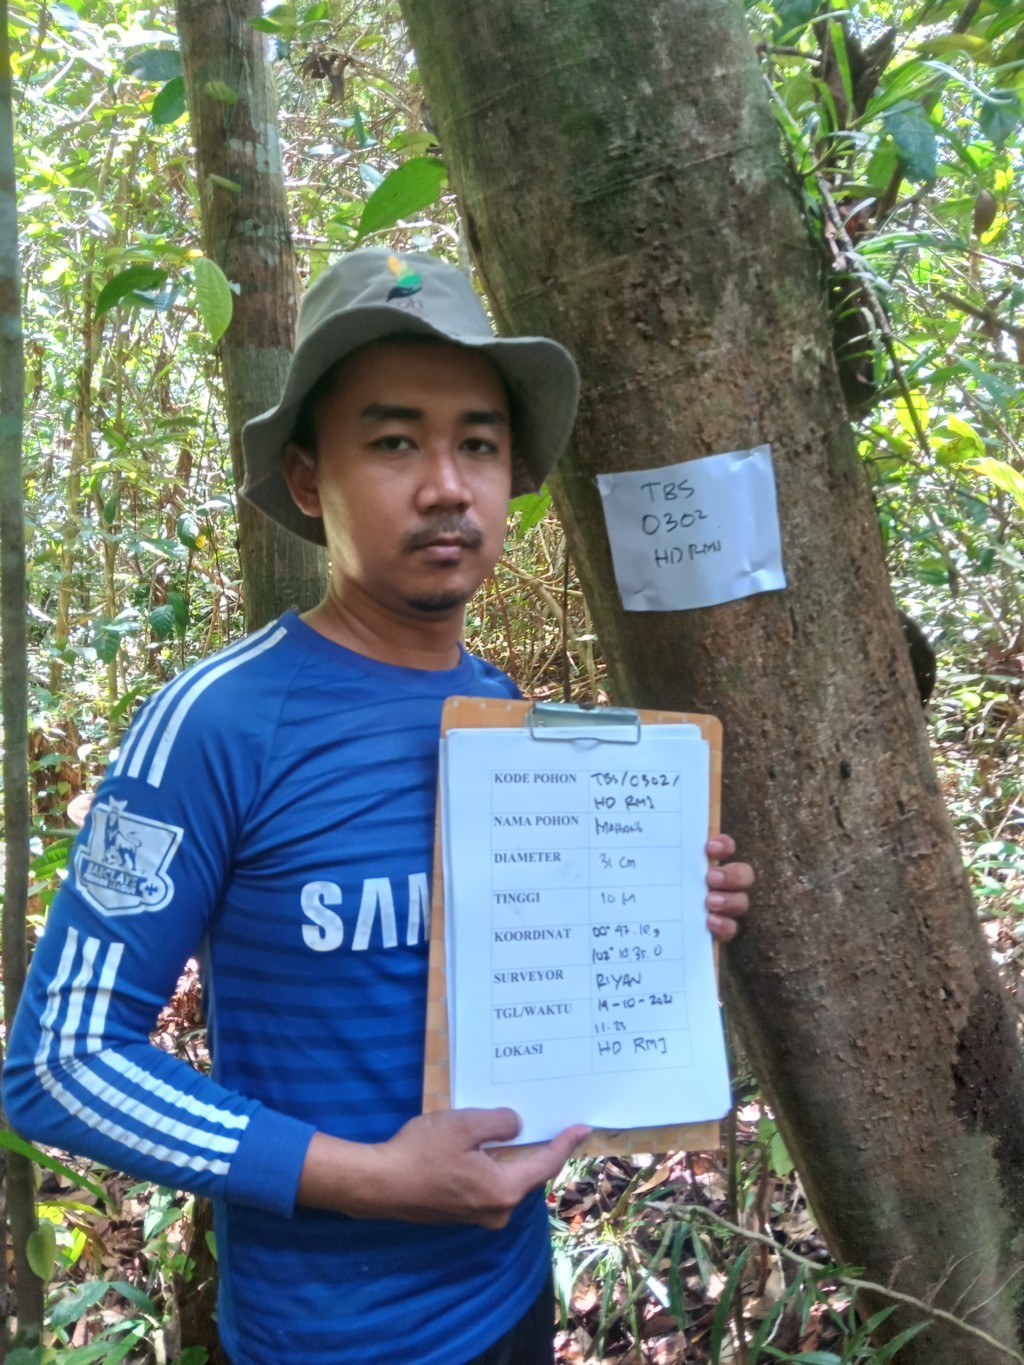 TBS
0302
HD RMJ
SAM
BARCLAYS
KODE POHON TBS/0302/
HD RMJ
NAMA POHON MAHANG
DIAMETER 31 cm
TINGGI 10 M
KOORDINAT 00° 47. 10.9
102° 10. 35. 0
SURVEYOR RIYAN
TGL/WAKTU 19-10-2021
11.25
LOKASI HD RMJ